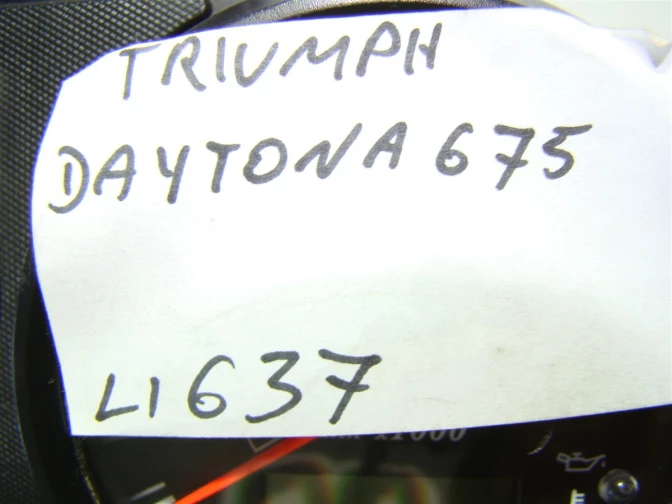 TRIUMPH
DAYTONA 675
LI 637
x1000